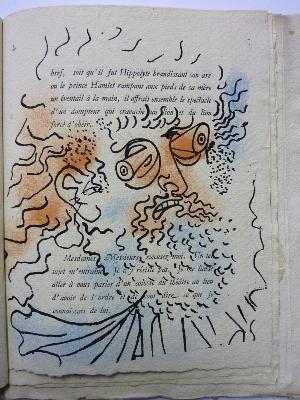 bref, soit qu'il fut Hippolyte brandissant son arc
ou le prince Hamlet rampant aux pieds de sa mère
un éventail à la main, il offrait ensemble le spectacle
d'un dompteur qui cravache un lion et du lion
forcé d'obéir.
Mesdames, Messieurs, excusez moi. Un tel
sujet m'entraîne. Je n'y résiste pas. Je me laisse
aller à vous parler d'un colosse du théâtre au lieu
d'avoir de l'ordre et de vous dire ce que je
connaissais de lui.